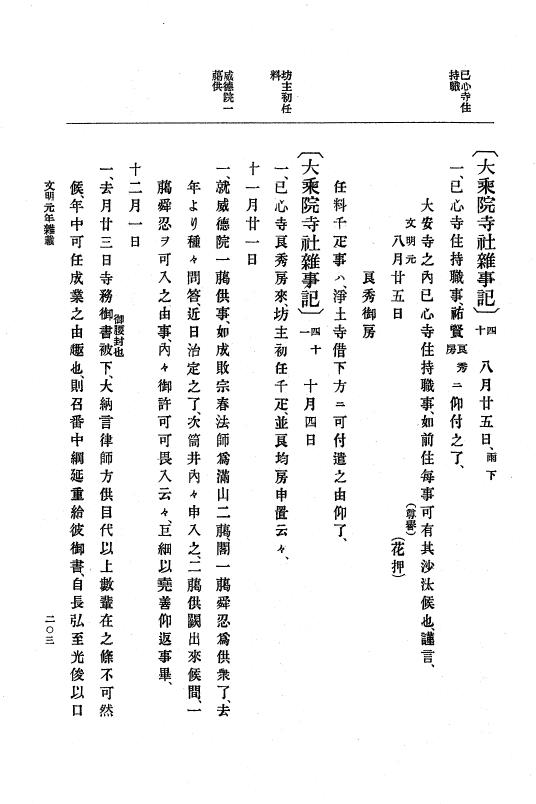 已心寺住
持職
坊主初任
料
威德院一
﨟供
〔大乘院寺社雜事記〕四十 八月廿五日、雨下
一、已心寺住持職事、祐賢良秀房ニ仰付之了、
大安寺之內已心寺住持職事、如前住每事可有其沙汰候也、謹言、
文明元
八月廿五日 (尊譽)(花押)
良秀御房
任料千疋事ハ、淨土寺借下方ニ可付遣之由仰了、
〔大乘院寺社雜事記〕四十一 十月四日
一、已心寺良秀房來、坊主初任千疋、並良均房申置云々、
十一月廿一日
一、就威德院一﨟供事、如成敗宗春法師爲滿山二﨟、閣一﨟舜忍爲供衆了、去
年より種々問答、近日治定之了、次筒井內々申入之、二﨟供闕出來候間、一
﨟舜忍ヲ可入之由事、內々御許可可畏入云々、巨細以堯善仰返事畢、
十二月一日
一、去月廿三日寺務御書被下、御腰封也大納言律師方供目代以上數輩在之條不可然
候、年中可任成業之由趣也、則召番中綱延重給彼御書、自長弘至光俊以口
文明元年雜載
二〇三